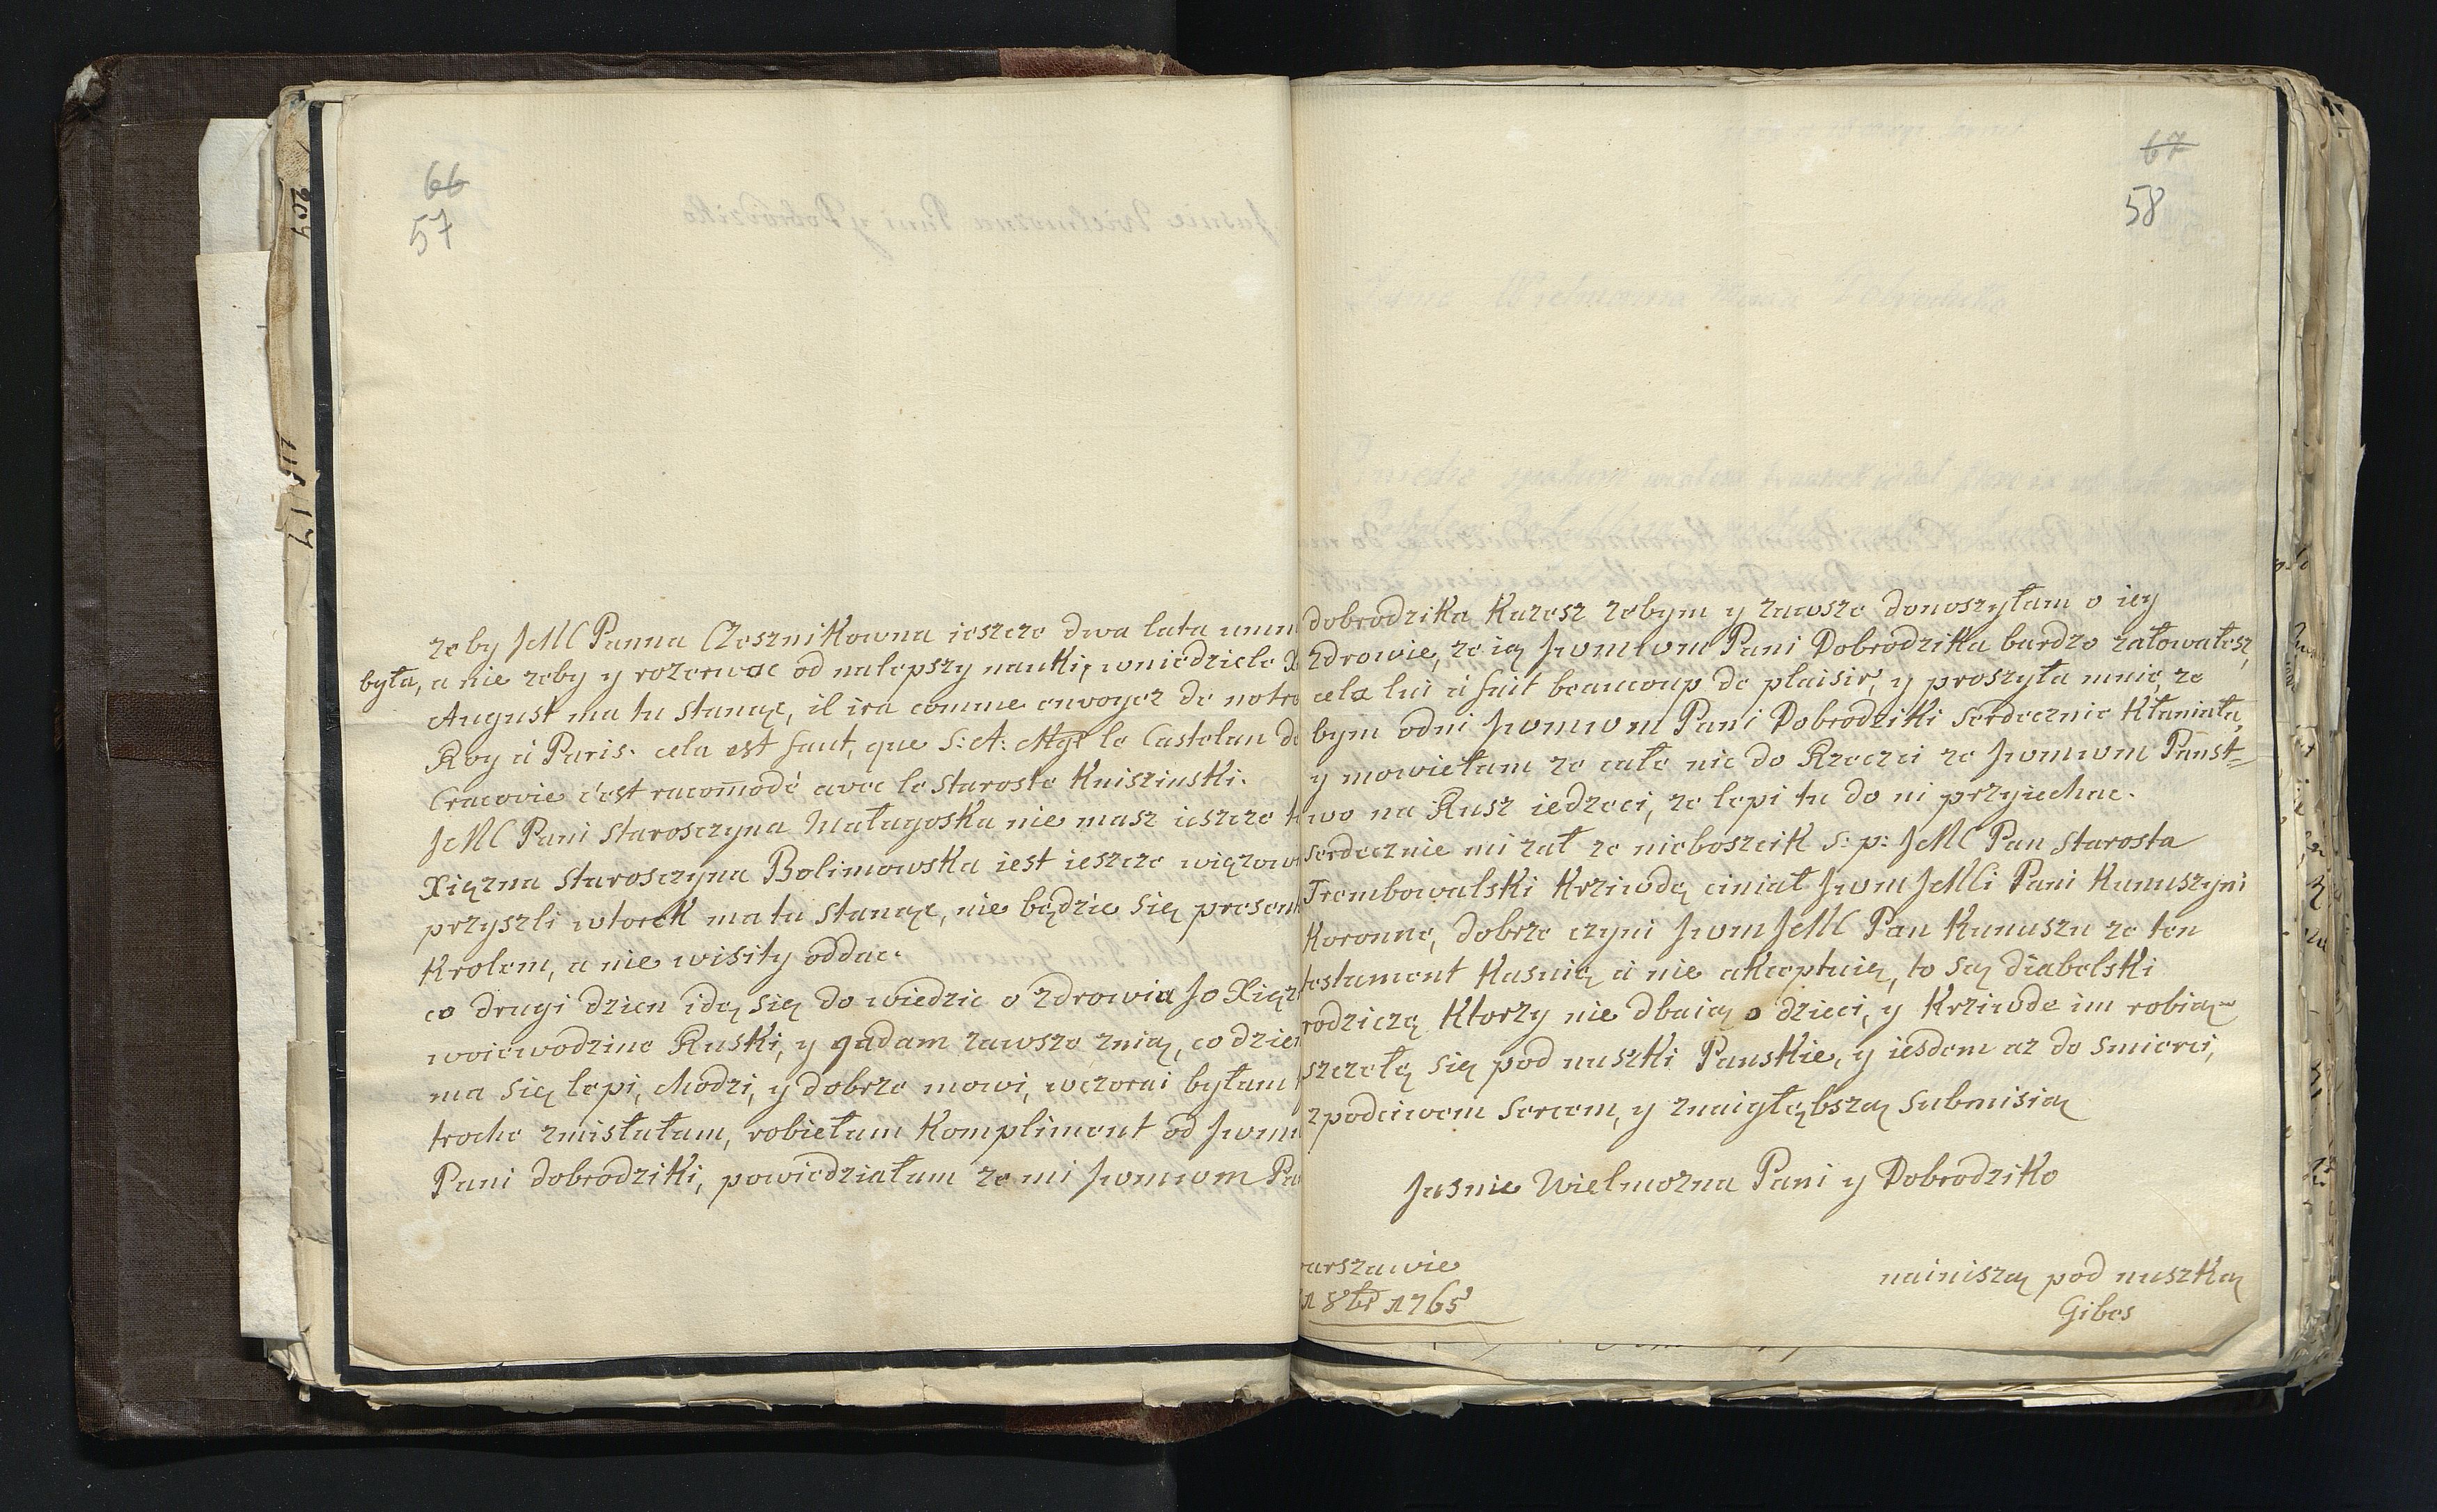 66
57
zeby JeMC Panna Czesznikowna ieszcze dwa lata
była, a nie zeby y rozerwac od nalepszy nauki, wniedziele
August ma tu stanąc, il ira comme envoyez de notre
Roy à Paris. cela est faut, que S: A: Mgr le Castelan de
Cracovie c'est racomodé avec le Staroste Kniszinski.
JeMC Pani Starosczyna Małagoska nie masz ieszcze
Xięzna Starosczyna Bolimowska iest ieszcze
przyszli wtorek ma tu stanąc, nie będzie się
Krolem, a nie wisity oddac.
co drugi dzien idę się do wiedzic o zdrowia Jo
woiewodzine Ruski, y gadam zawsze znią, co
ma się lepi, chodzi, y dobrze mowi, wczorai byłam
troche zmisłałam, robiełam Kompliment od
Pani dobrodziki, powiedziałam ze mi Jwmwm
67
58
dobrodzika Kazesz zebym y zawsze donoszyłam o iey
zdrowie, ze ią Jwmwm Pani Dobrodzika bardzo załowałesz,
cela lui a fait beaucoup de plaisir, y proszyła mnie, ze
bym odni Jwmwm Pani Dobrodziki serdecznie Kłaniała,
y mowiełam ze całe nic do Rzeczi ze Jwmwm Panst=
wo na Rusz iedzeci, ze lepi tu do ni przyiechac.
serdecznie mi zał ze nieboszcik S: p: JeMC Pan Starosta
Trembowalski Krziwdę ciniał Jwm JeMCi Pani Kunuszyni
Koronne, dobrze czyni Jwm JeMC Pan Kunuszu ze ten
testament Kasuię à nie akceptuię, to są diabelski
rodziczę Ktorzy nie dbaią o dzieci, y Krziwde im robią
szczełę się pod nuszki Panskie, y iesdem az do smierci,
zpodciwem sercem, y znaigłębszą submisią
Jasnie Wielmozna Pani y Dobrodziko
arszawie
8br 1765
nainiszą pod nuszką
Gibes